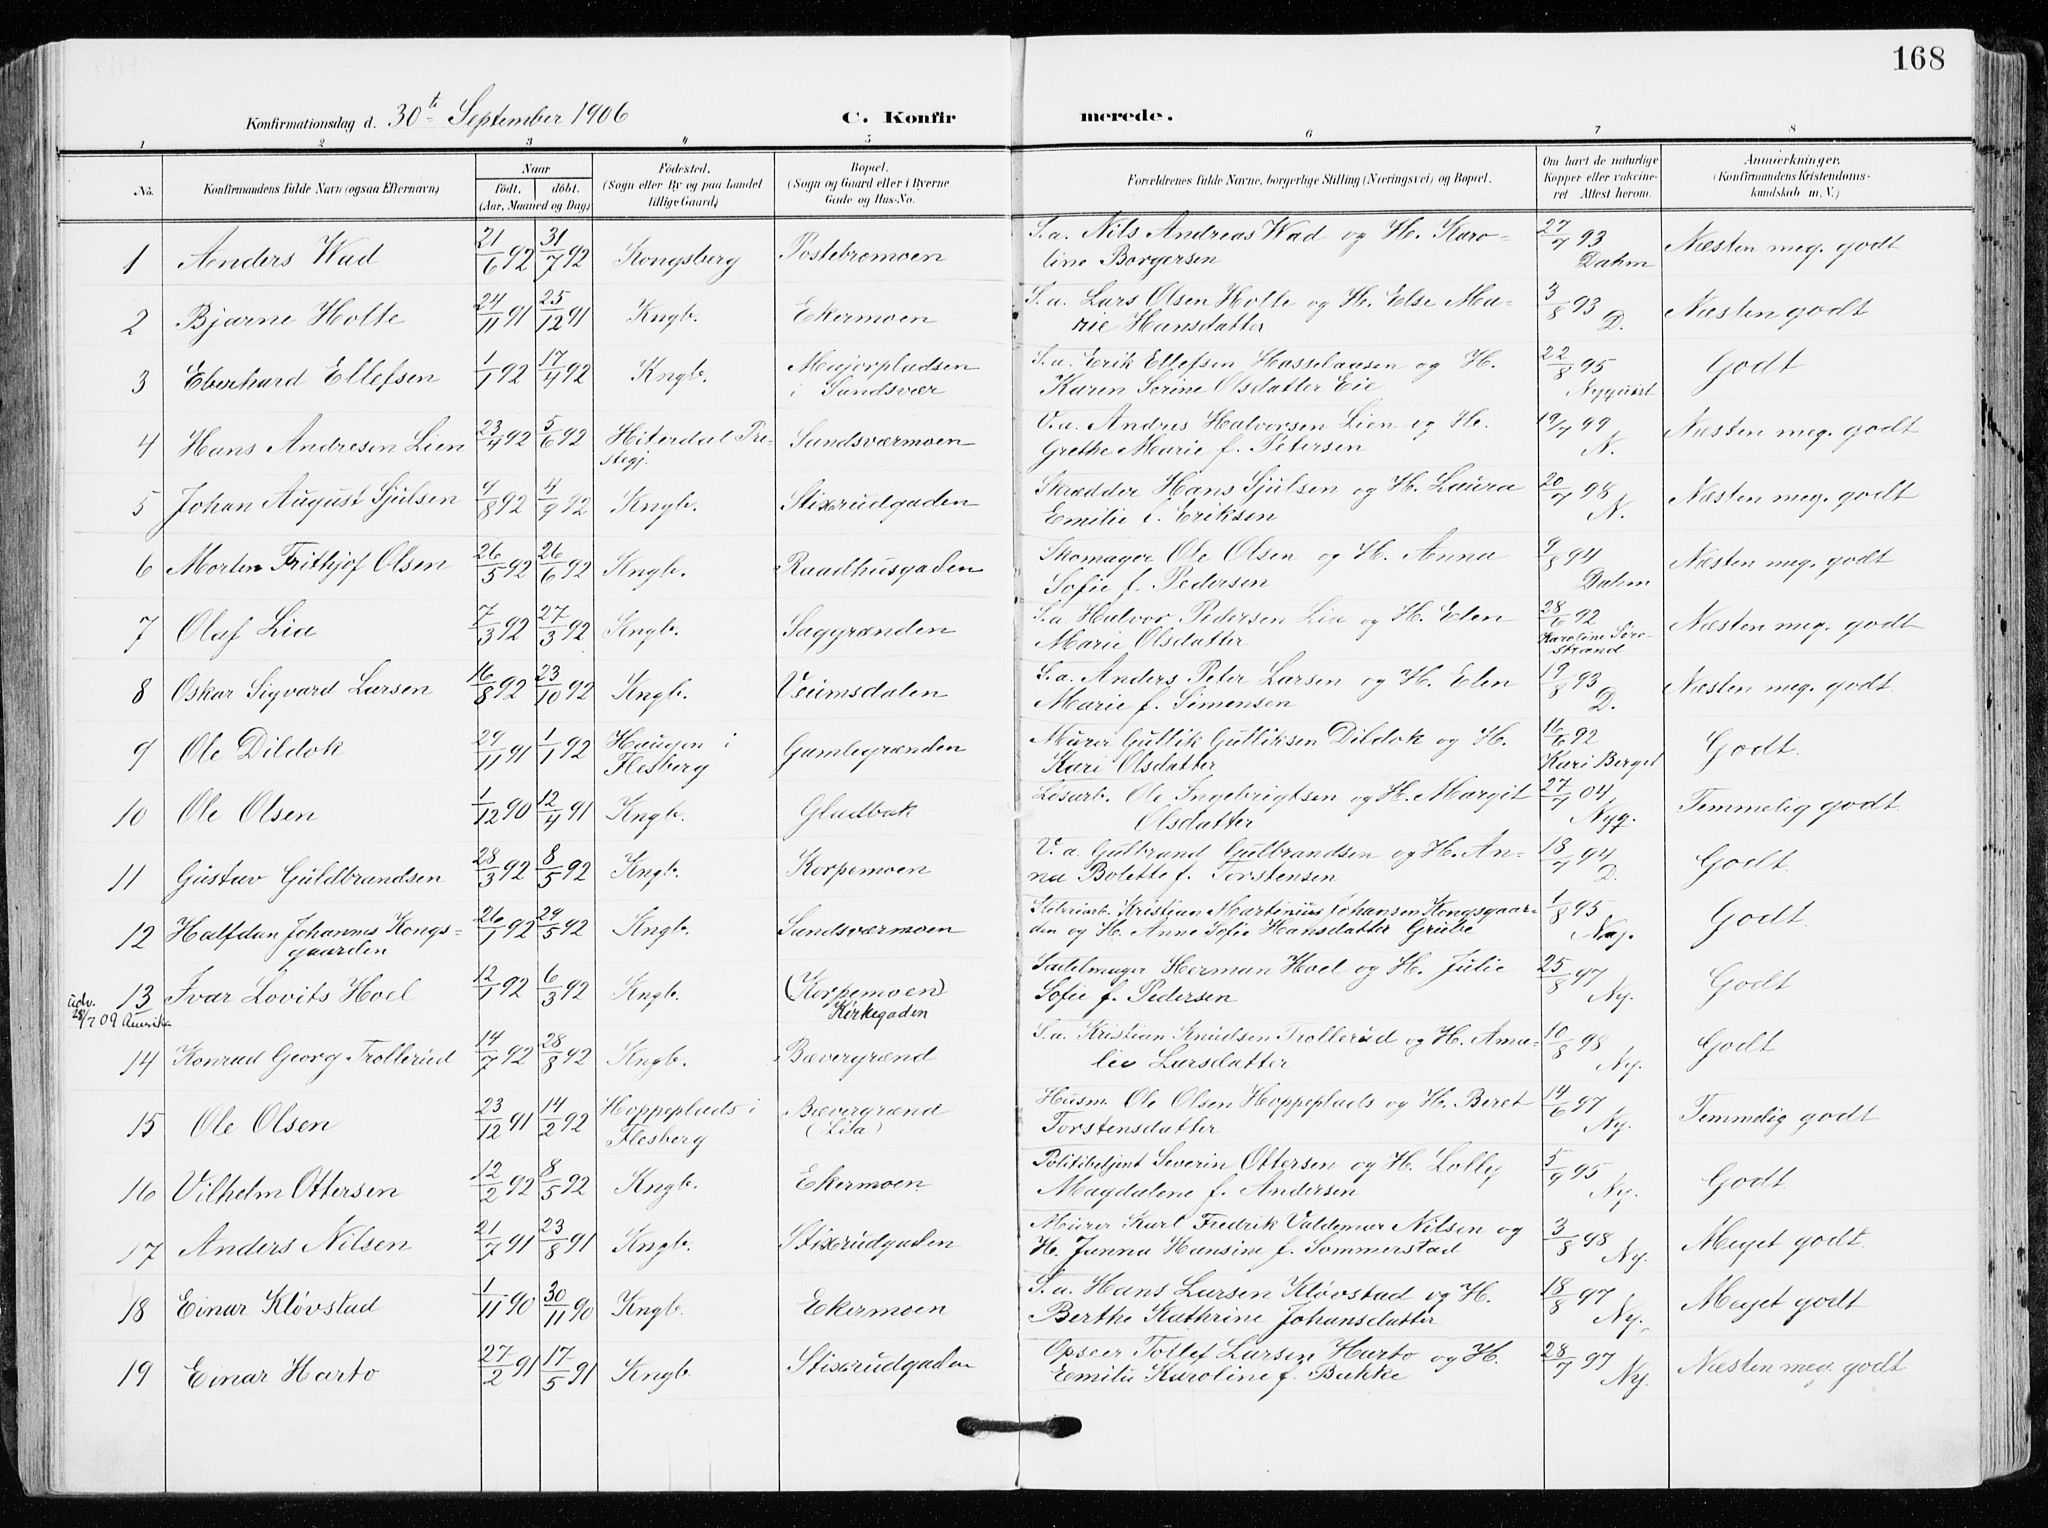 168
Konfirmationsdag d. 30te September 1906 C. Konfirmerede.
1 2 3 4 5 6 7 8
No. Konfirmandens fulde Navn (ogsaa Efternavn) Naar Födt. döbt. (Aar, Maaned og Dag) Födested. (Sogn eller By og paa Landet tillige Gaard) Bopæl. (Sogn og Gaard eller i Byerne Gade og Hus-No. Forældrenes fulde Navne, borgerlige Stilling (Næringsvei) og Bopæl. Om havt de naturlige Kopper eller vakcineret Attest herom. Anmærkninger. (Konfirmandens Kristendomskundskab m. V.)
1 Anders Wad 21/6 92 31/7 92 Kongsberg Postebromoen S.a. Nils Andreas Wad og H. Karo-
line Borgersen 27/7 93 Dahm Næsten meg. godt
2 Bjarne Holte 24/11 91 25/12 91 Kngb. Ekermoen S.a. Lars Olsen Holte og H. Else Ma-
rie Hansdatter 3/8 93 D. Næsten godt
3 Eberhard Ellefsen 1/1 92 17/4 92 Kngb. Majorpladsen
i Sandsvær S.a. Erik Ellefsen Hasselaasen og H.
Karen Serine Olsdatter Eie 22/8 95 Nyquist Godt
4 Hans Andresen Lien 23/4 92 5/6 92 Hiterdal Pre-
stegj. Sandsværmoen V.a. Andres Halvorsen Lien og H.
Grethe Marie f. Petersen 19/7 99 N. Næsten meg. godt
5 Johan August Sjulsen 9/8 92 4/9 92 Kngb. Stixrudgaden Skrædder Hans Sjulsen og H. Laura
Emilie f. Eriksen 20/7 98 N. Næsten meg. godt
6 Morten Frithjof Olsen 26/5 92 26/6 92 Kngb. Raadhusgaden Skomager Ole Olsen og H. Anna
Sofie f. Pedersen 9/8 94 Dahm Næsten meg. godt
7 Olaf Lia 7/3 92 27/3 92 Kngb. Saggrænden S.a. Halvor Pedersen Lia og H. Elen
Marie Olsdatter 28/6 92 Karoline Siro-
strand Næsten meg. godt
8 Oskar Sigvard Larsen 16/8 92 23/10 92 Kngb. Veumsdalen S.a. Anders Peter Larsen og H. Elen
Marie f. Simensen 19/8 93 D. Næsten meg. godt.
9 Ole Dildok 29/11 91 1/1 92 Haugen i
Flesberg Gamlegrænden Murer Gullik Gulliksen Dildok og H.
Kari Olsdatter 16/6 92 Kari Berget Godt.
10 Ole Olsen 1/12 90 12/4 91 Kngb. Gladbak Løsarb. Ole Ingebrigtsen og H. Margit
Olsdatter 27/7 04 Nyq. Temmelig godt
11 Gustav Guldbrandsen 28/3 92 8/5 92 Kngb. Korpemoen V.a. Gulbrand Gulbrandsen og H. An-
na Bolette f. Torstensen 18/7 94 D. Godt.
12 Halfdan Johannes Kongs-
gaarden 26/1 92 29/5 92 Kngb. Sandsværmoen Kristian Martinius Johansen Kongsgaar-
den og H. Anne Sofie Hansdatter Grube 1/8 95 Ny. Godt.
13 Ivar Lovits Hoel 12/1 92 6/3 92 Kngb. (Korpemoen)
Kirkegaden Sadelmager Herman Hoel og H. Julie
Sofie f. Pedersen 25/8 97 Ny. Godt
udv.
28/7 09 Amerika
14 Konrad Georg Trollerud 14/7 92 28/8 92 Kngb. Bævergrænd S.a. Kristian Knudsen Trollerud og H. Ama-
lie Larsdatter 10/8 98 Ny. Godt
15 Ole Olsen 23/12 91 14/2 92 Hoppeplads i
Flesberg Bævergrænd
(Lia) Husm. Ole Olsen Hoppeplads og H. Beret
Torstensdatter 14/6 97 Ny. Temmelig godt
16 Vilhelm Ottersen 12/2 92 8/5 92 Kngb. Ekermoen Politibetjent Severin Ottersen og H. Lolly
Magdalene f. Andersen 5/9 95 Ny. Godt.
17 Anders Nilsen 21/7 91 23/8 91 Kngb. Stixrudgaden Murer Karl Fredrik Valdemar Nilsen og
H. Janna Hansine f. Sommerstad 3/8 98 Ny. Meget godt.
18 Einar Kløvstad 1/11 90 30/11 90 Kngb. Ekermoen S.a. Hans Larsen Kløvstad og H.
Berthe Kathrine Johansdatter 18/8 97 Ny. Meget godt
19 Einar Harto 27/2 91 17/5 91 Kngb. Stixrudgaden Opseer Tollef Larsen Harto og H.
Emilie Karoline f. Bakke 28/7 97 Ny. Næsten meg. godt